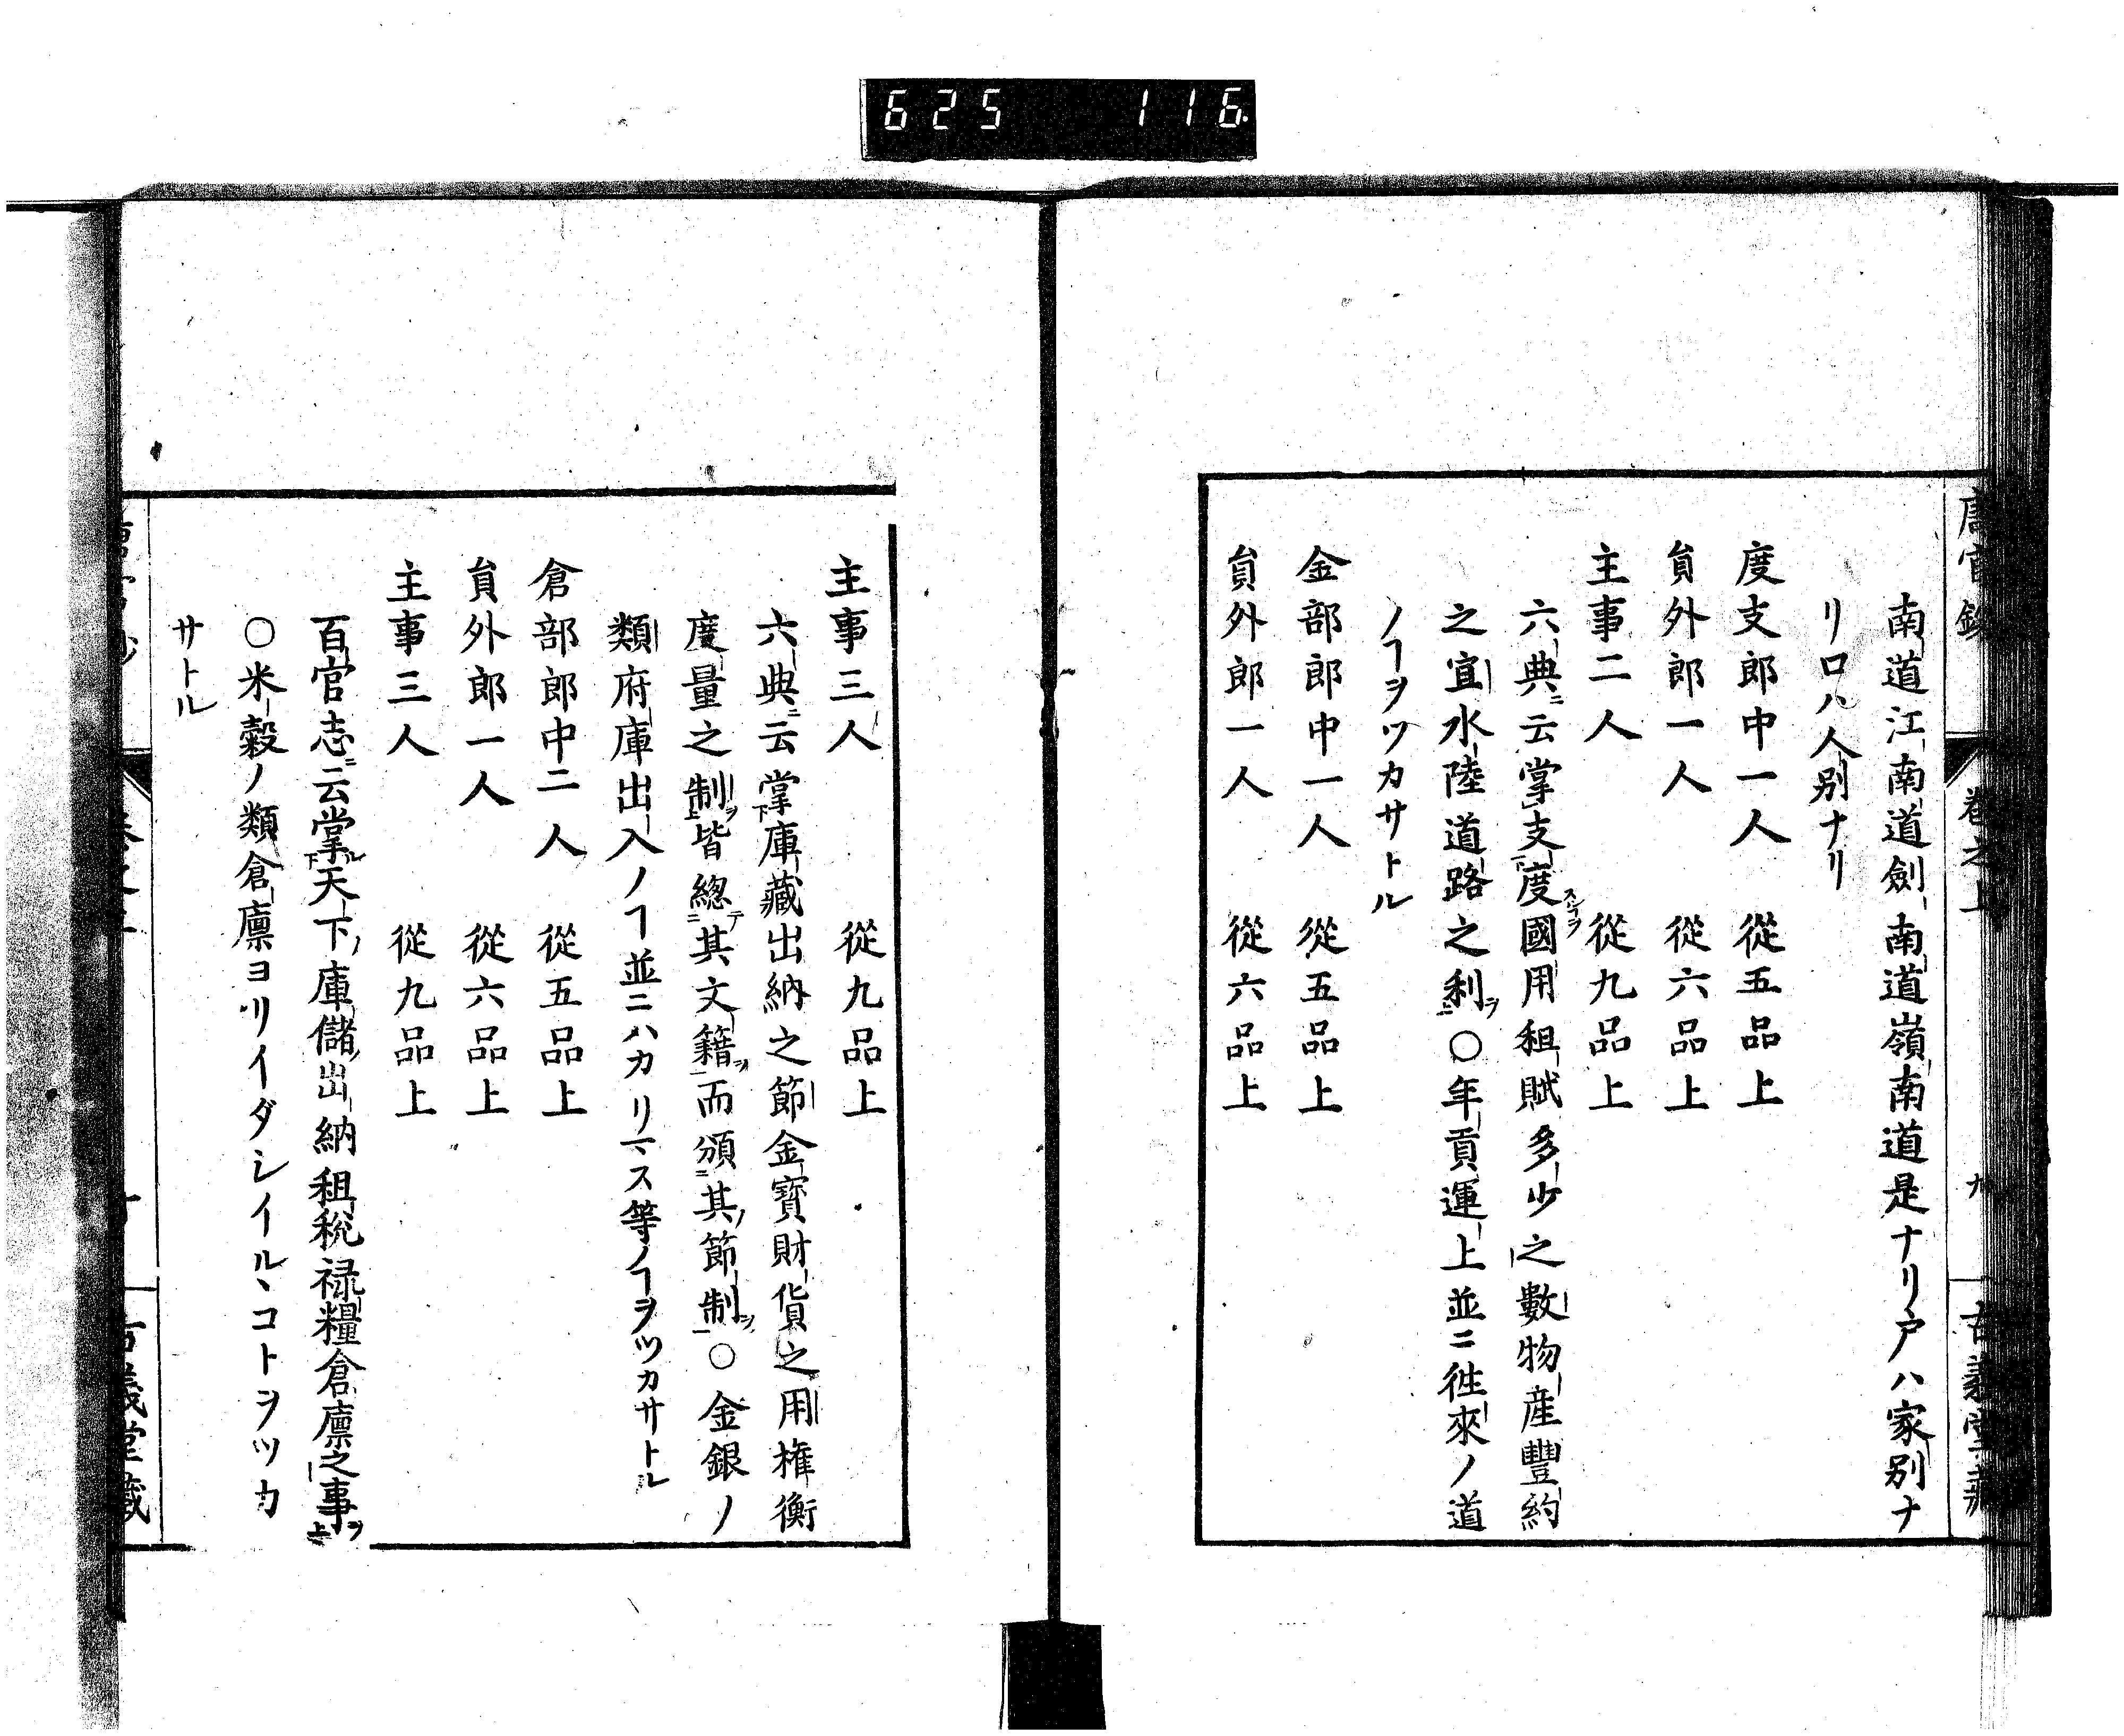 625 116
南道江南道劍南道嶺南道是ナリ戸ハ家別ナ
リ口ハ人別ナリ
度支郎中一人 從五品上
貟外郎一人 從六品上
主事二人 從九品上
六典ニ云掌支度國用租賦多少之數物産豐約
之宜水陸道路之利ヲ○年貢運上並ニ徃來ノ道
ノヿヲツカサトル
金部郎中一人 從五品上
貟外郎一人 從六品上
主事三人 從九品上
六典ニ云掌庫藏出納之節金寳財貨之用権衡
度量之制ヲ皆總テ其文籍ヲ而頒其節制ヲ○金銀ノ
類府庫出入ノヿ並ニハカリマス等ノヿヲツカサトル
倉部郎中二人 從五品上
貟外郎一人 從六品上
主事三人 從九品上
百官志ニ云掌ル天下ノ庫儲出納租税禄糧倉廪之事ヲ
○米穀ノ類倉廪ヨリイダシイルヽコトヲツカ
サトル
古義堂藏